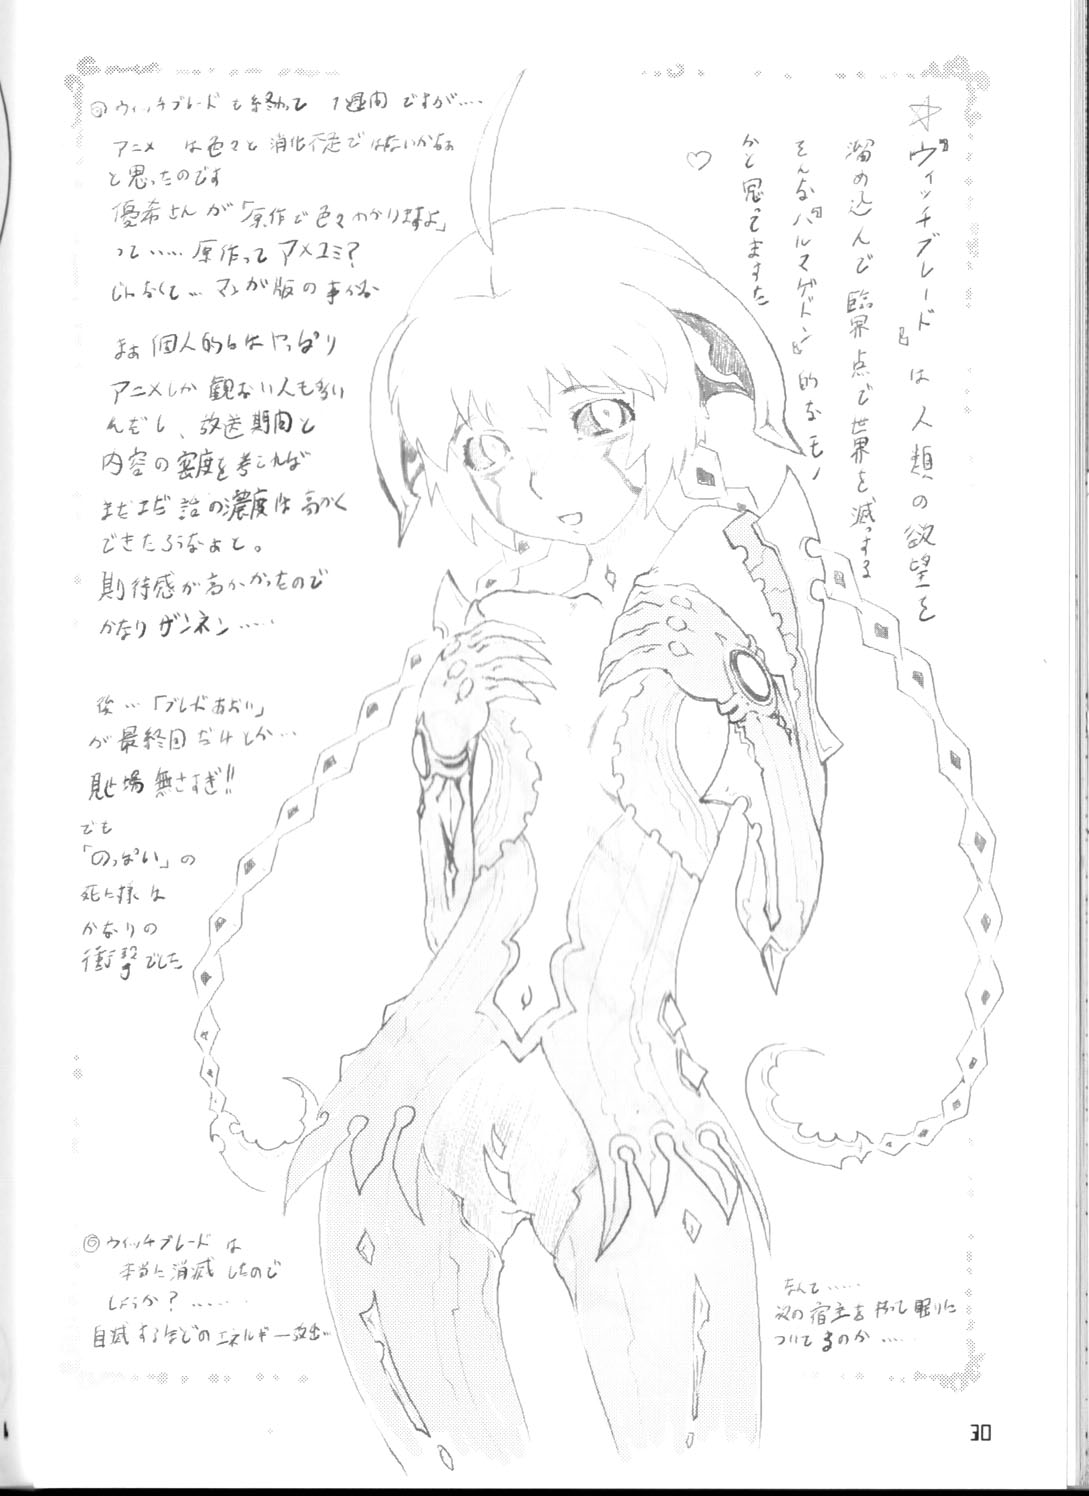 ◎ウィッチブレードも終わって 1週間ですが‥‥
アニメ は色々と消化不足ではないかなぁ
と思ったのです
優希さんが「原作で色々わかりますよ」
って‥‥‥原作ってアメコミ?
じゃなくて‥マンガ版の事かな
まぁ個人的にはやっぱり
アニメしか観ない人も多い
んだし、放送期間と
内容の密度を考えれば
まだまだ話の濃度は高かく
できたろうなぁと。
期待感が高かかったので
かなりザンネン‥‥‥
後‥「ブレードあおい」
が最終回だけとか‥‥
見せ場無さすぎ!!
でも
「のっぽい」の
死に様は
かなりの
衝撃でした
☆『ヴィッチブレード』は人類の欲望を
溜め込んで臨界点で世界を滅っする
そんな『ハルマゲドン』的なモノ
かと思ってますた
♡
◎ウィッチブレードは
本当に消滅したので
しょうか?‥‥‥‥
自滅するほどのエネルギー放出‥
なんて‥‥‥
次の宿主を待って眠りに
ついてるのか‥‥‥
30